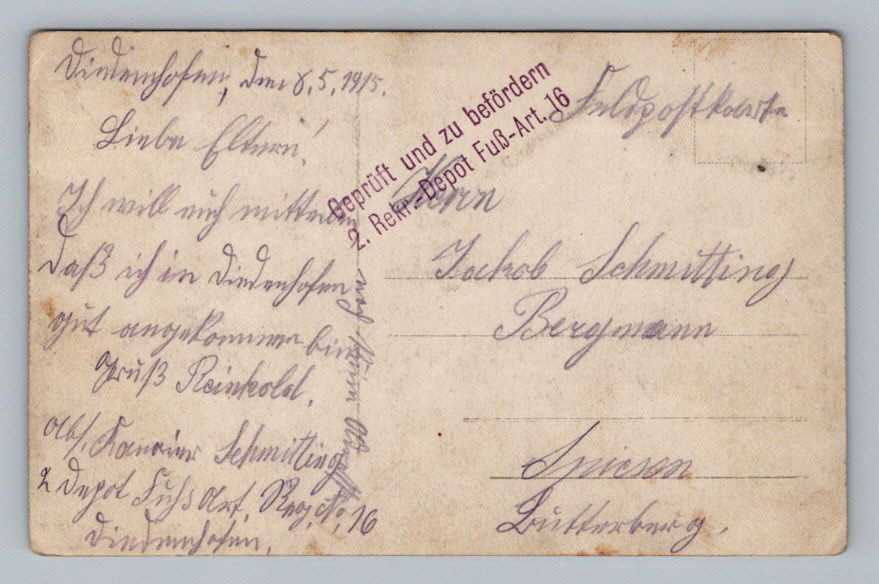 Diedenhofen, den 8.5.1915.
Liebe Eltern!
Ich will euch mitteilen
daß ich in Diedenhofen
gut angekommen bin
Gruß Reinhold.
Abs. Kanonier Schmitting
2 Depot Fuhs Art. Reg. No. 16
Diedenhofen.
Geprüft und zu befördern
2. Rekr.-Depot Fuß-Art. 16
Feldpostkarte
Herrn
Jackob Schmitting
Bergmann
Spiesen
Butterberg.